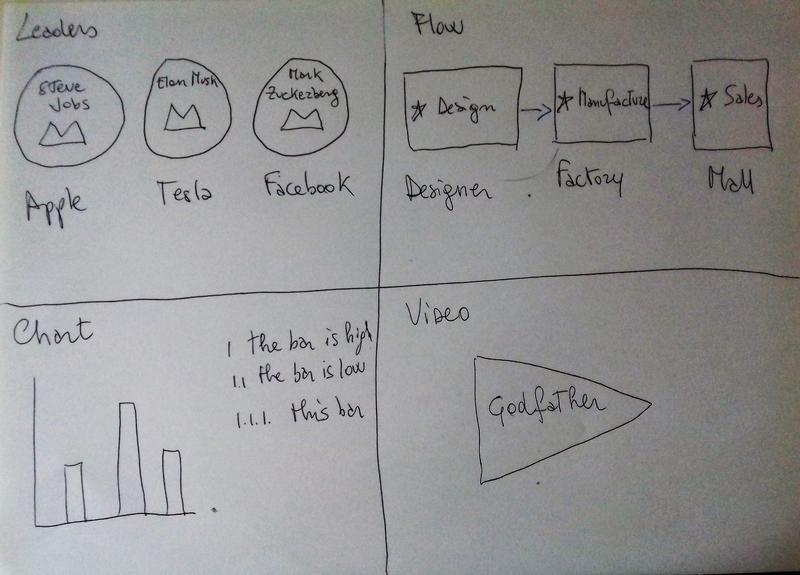 Leaders
Steve
Jobs
Elon Musk
Mark
Zuckerberg
Apple
Tesla
Facebook
Flow
Design
Manufacture
Sales
Designer
Factory
Mall
Chart
1 the bar is high
1.1 the bar is low
1.1.1. this bar
Video
Godfather